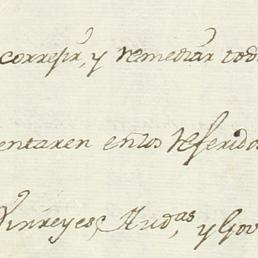 correjir, y remediar tod
entaren en los referidos
Virreyes, Aud.as, y Gov